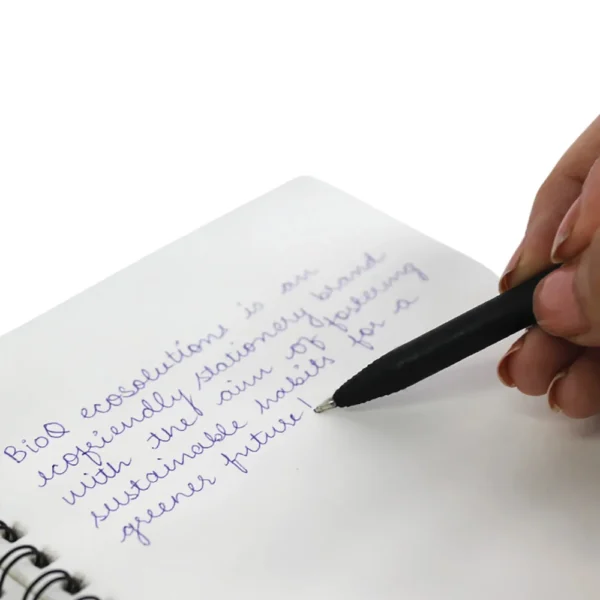 BioQ ecosolutions is an
ecofriendly stationery brand
with the aim of fostering
sustainable habits for a
greener future!